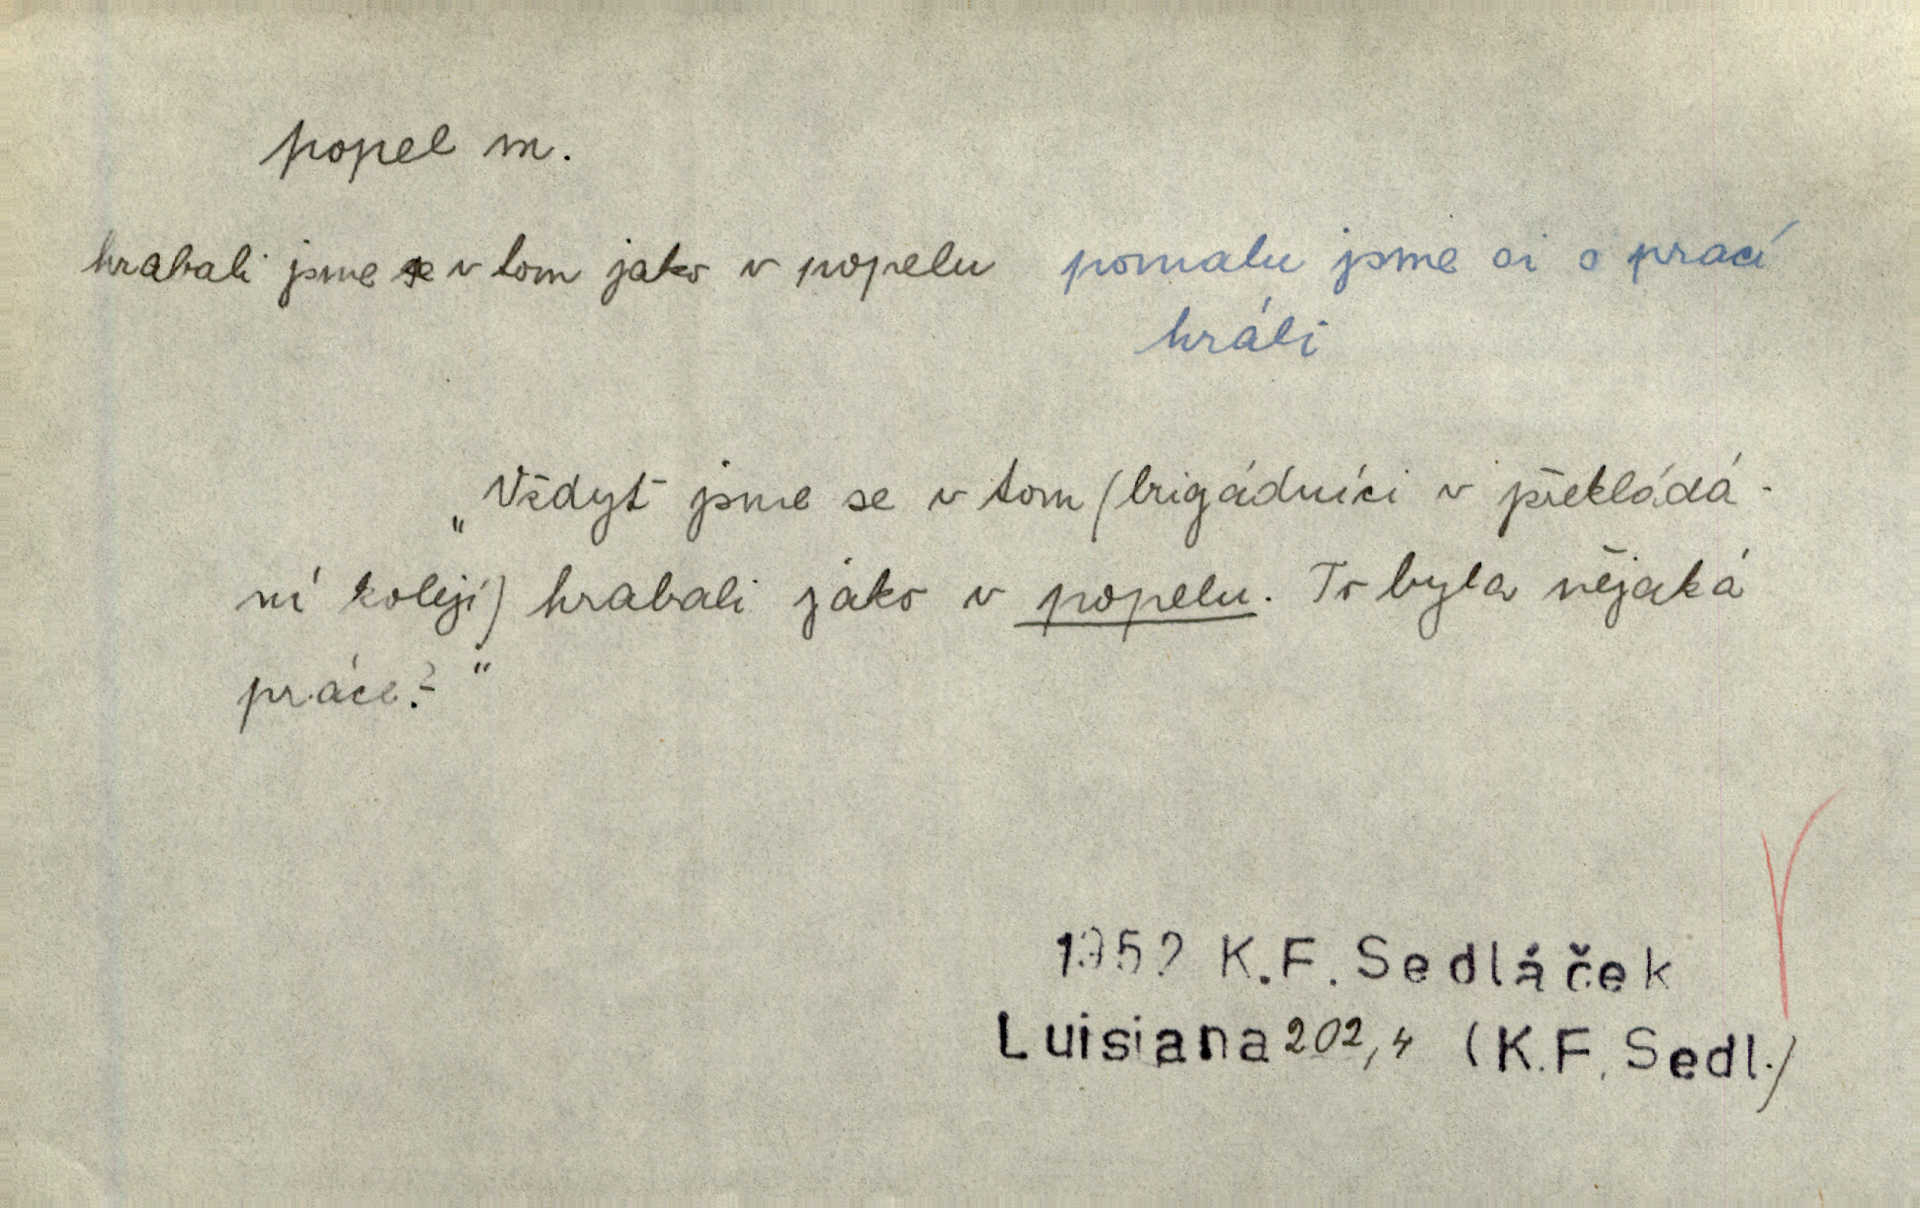 popel m.
hrabali jsme se v tom jako v popelu pomalu jsme si s prací
hráli
„Vždyť jsme se v tom (brigádníci v překládá-
ní kolejí) hrabali jako v popelu. To byla nějaká
práce?“
1952 K.F. Sedláček
Luisiana 202,4 (K.F. Sedl.)